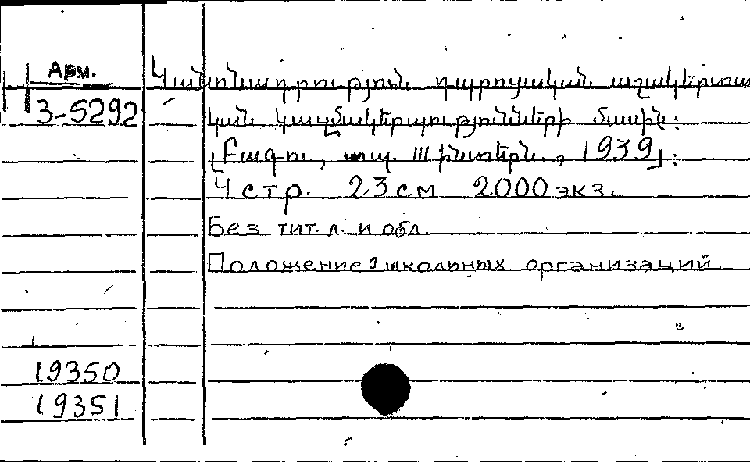 Арм. Կանոնադրություն դպրոցական աշակերտա
3-5292 կան կազմակերպությունների մասին:
[Բագու, տպ. III ինտերն., 1939]:
4 стр. 23 см 2000 экз.
Без тит. л. и обл.
Положение школьных организаций
19350
19351